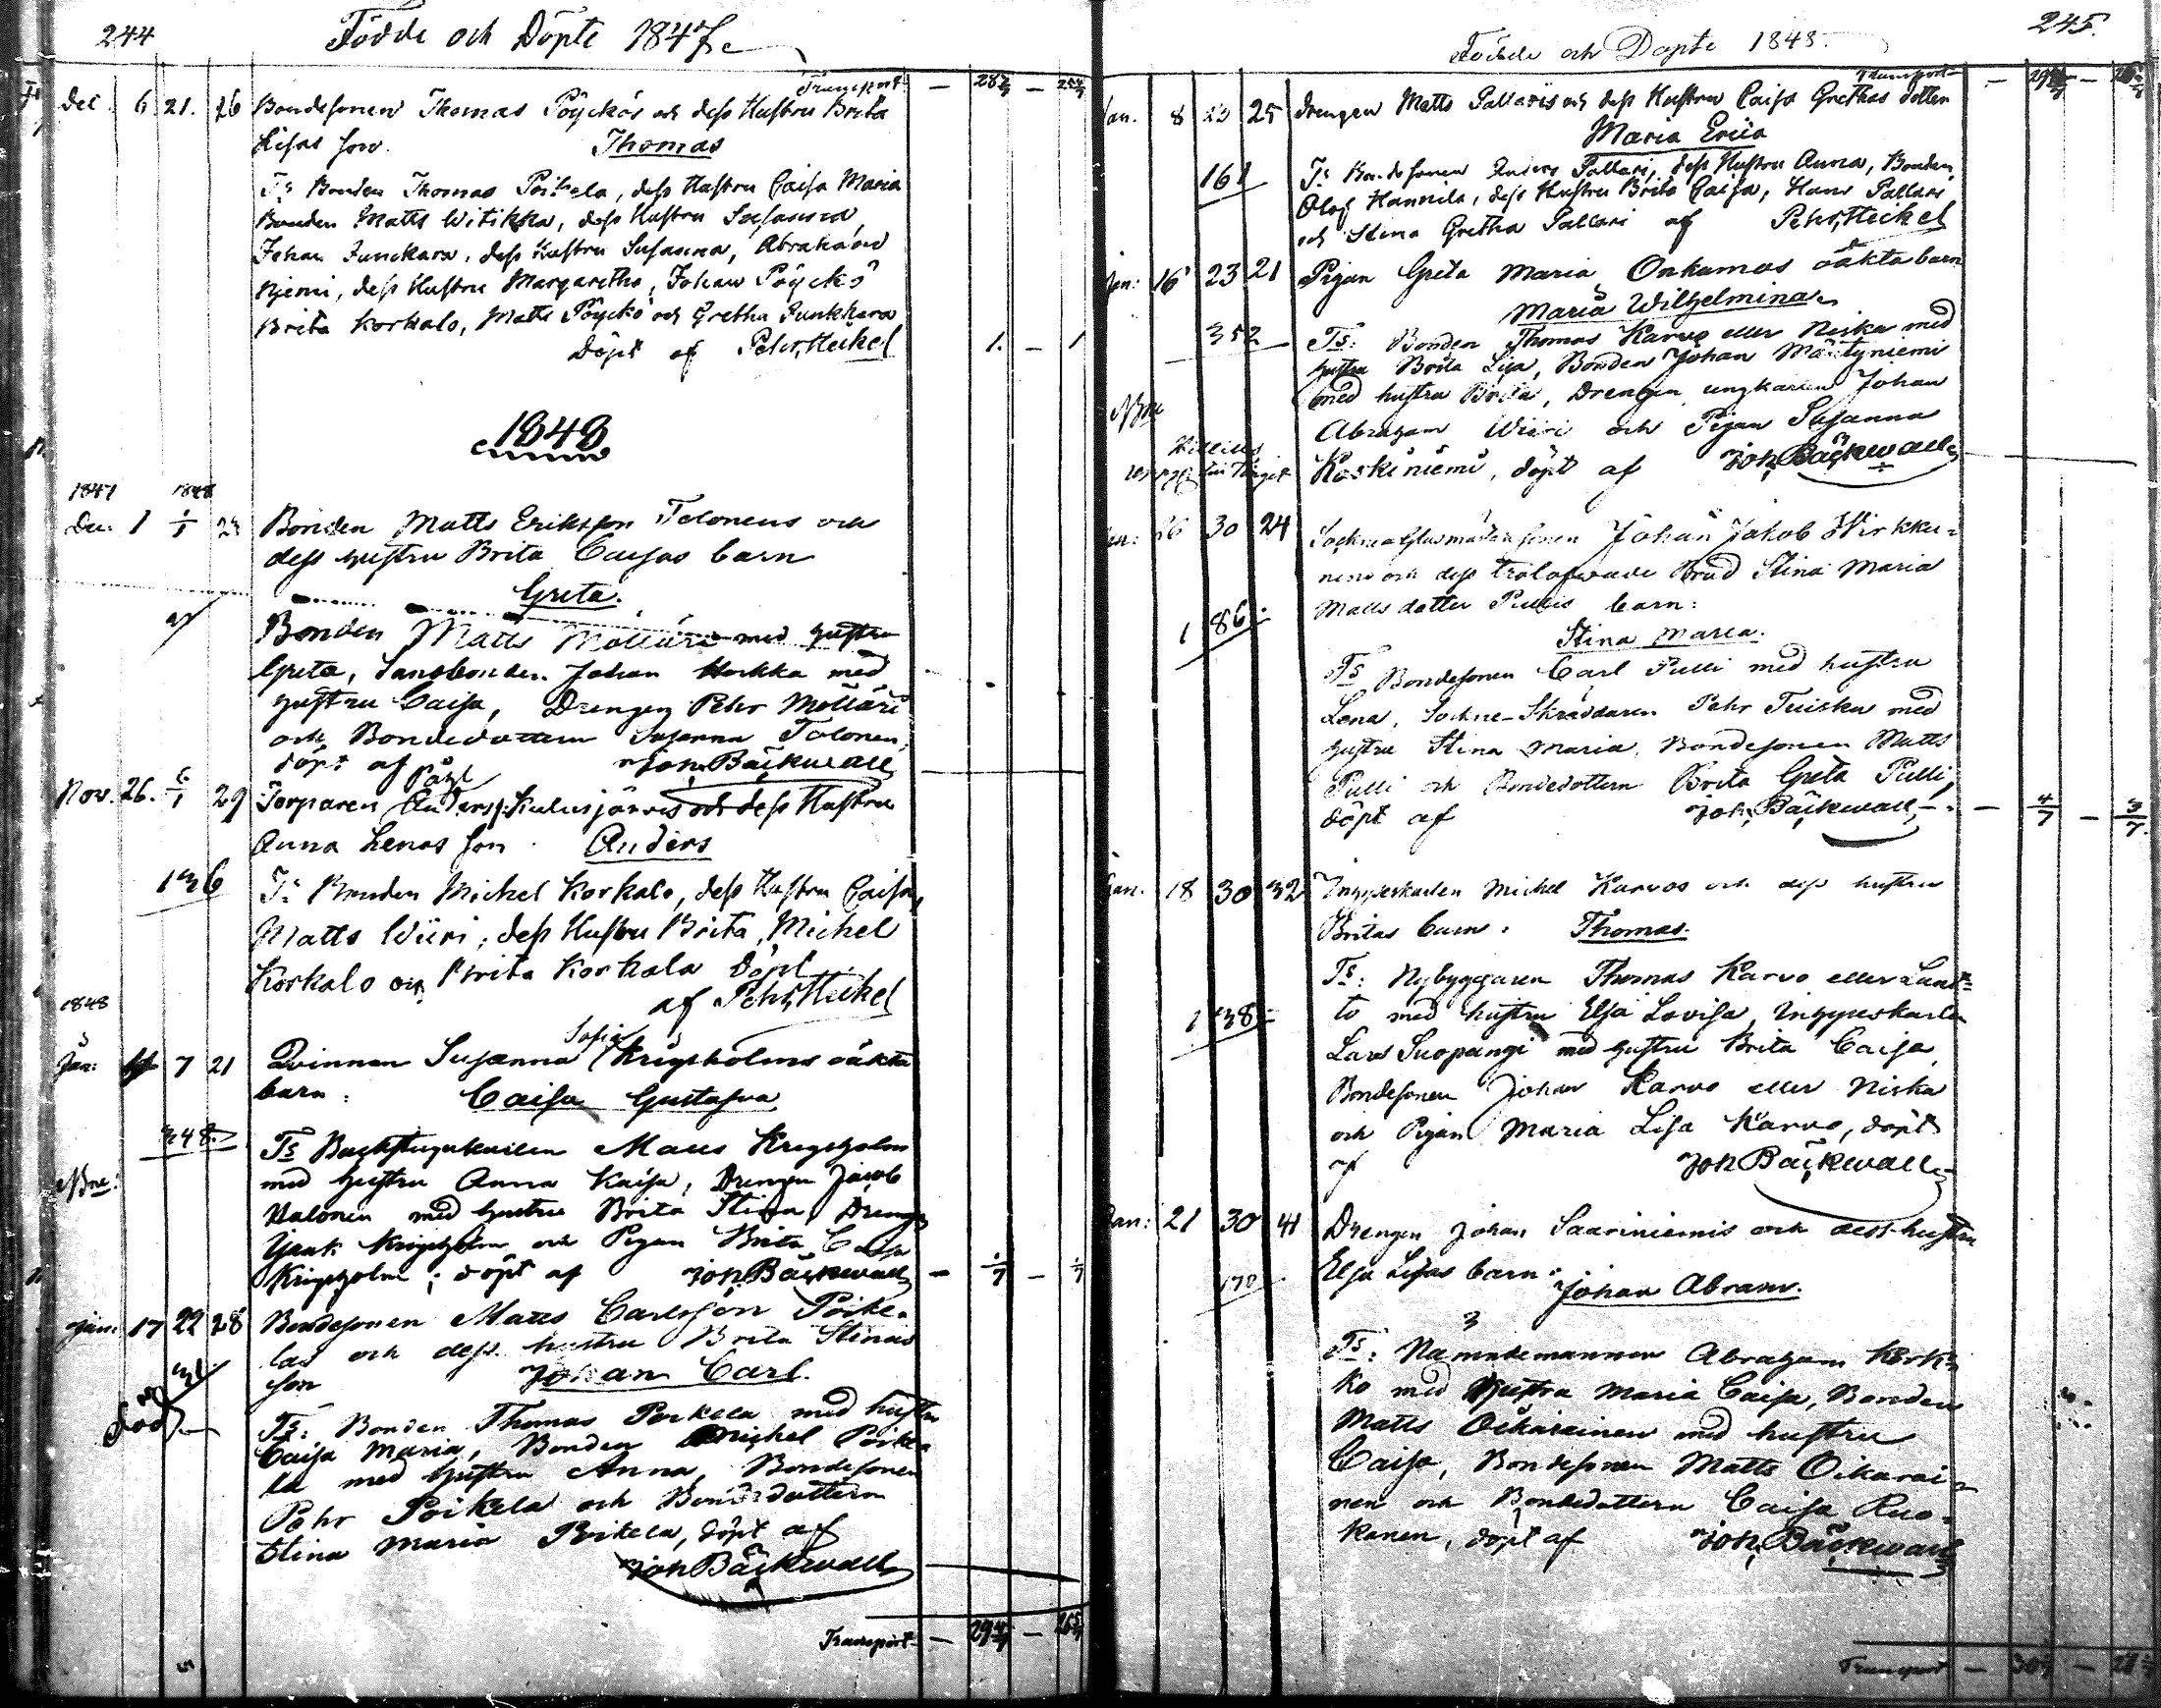 244
Födde och Döpte 1847
Transport — 28 2/7 — 25 4/7
Dec. 6 21. 26 Bondesonen Thomas Pöyckös och dess Hustru Brita
Lisas son. Thomas
Ts Bonden Thomas Poikela, dess Hustru Caisa Maria
Bonden Matts Witikka, dess Hustru Susanna,
Johan Junckara, dess Hustru Susanna, Abraham
Njemi, dess Hustru Margaretha, Johan Pöyckö
Brita Korkalo, Matts Pöyckö och Gretha Junkkara
Döpt af Pehr Heikel 1. — 1
1848
1847 1848
Dec. 1 1/1 Bonden Matts Eriksson Tolonens och
dess hustru Brita Caisas barn
Greta.
Bonden Matts Mölläri med hustru
Greta, Landbonden Johan Horkka med
hustru Caisa, Drengen Pehr Mölläri
och Bondedottern Susanna Tolonen,
döpt af Joh. Bäckwall
Påhl
Nov. 26. 6/1 29 Torparen Anders Kulusjärvis och dess Hustru
Anna Lenas son. Anders
136
Ts Bonden Michel Korkalo, dess Hustru Caisa,
Matts Wiiri, dess Hustru Brita, Michel
Korkalo och Brita Korkala Döpt
af Pehr Heikel
1848
Sofia
Jan: 7 21 Qvinnan Susanna Krigsholms oäkta
barn: Caisa Gustafva
348.
Ts Backstugukarlen Mats Krigsholm
med hustru Anna Kaisa, Drengen Jacob
Halonen med hustru Brita Stina, Dreng
Isak Krigsholm och Pigan Brita Caisa
Krigsholm; döpt af Joh. Bäckwall — 1/7 — 1/7
Jan. 17 22 28 Bondesonen Matts Carlsson Poike-
las och dess hustru Brita Stinas
son Johan Carl.
död
Ts: Bonden Thomas Poikela med hustru
Caisa Maria, Bonden Michel Poike-
la med hustru Anna, Bondesonen
Pehr Poikela och Bondedottern
Stina Maria Poikela, döpt af
Joh Bäckwall
Transport — 29 4/7 — 26 5/7
245.
Födde och Döpte 1848.
Transport —
Jan. 8 23 25 Drengen Matts Pallaris och dess Hustru Caisa Grethas dotter
Maria Erica
161
Ts Bondesonen Anders Pallari, dess Hustru Anna, Bonden
Olof Hannila, dess Hustru Brita Caisa, Hans Pallari
och Stina Gretha Pallari af Pehr Heikel
Jan: 16 23 21 Pigan Greta Maria Onkamos oäkta barn
Maria Wilhelmina.
352
Ts: Bonden Thomas Karvo eller Niska med
hustru Brita Lisa, Bonden Johan Mäntyniemi
med hustru Brita, Drengen ungkarlen Johan
Abraham Wiiri och Pigan Susanna
Koskiniemi, döpt af Joh Bäckwall
Jan: 16 30 24 Sockneglasmästaresonen Johan Jakob Wirkku-
nens och dess trolofvade Brud Stina Maria
Matts dotter Pullis barn:
186
Stina Maria.
Ts Bondesonen Carl Pulli med hustru
Lena, Sockne-Skräddaren Pehr Tuisku med
hustru Stina Maria, Bondesonen Matts
Pulli och Bondedottern Brita Greta Pulli,
döpt af Joh. Bäckwall — 4/7 — 3/7
Jan. 18 30 32 Inhyseskarlen Michel Karvos och dess hustru
Britas barn: Thomas.
Ts: Nybyggaren Thomas Karvo eller Luut-
138 to med hustru Elsa Lovisa, Inhyseskarlen
Lars Suopangi med hustru Brita Caisa,
Bondesonen Johan Karvo eller Niska
och Pigan Maria Lisa Karvo, döpt
af Joh Bäckwall
Jan: 21 30 41 Drengen Johan Saariniemis och dess hustru
Elsa Lisas barn:
170 Johan Abram.
Ts: Nämndemannen Abraham Kork-
ko med Hustru Maria Caisa, Bonden
Matts Oikarainen med hustru
Caisa, Bondesonen Matts Oikarai-
nen och Bondedottern Caisa Ruo-
kanen, döpt af Joh. Bäckwall
Transport —